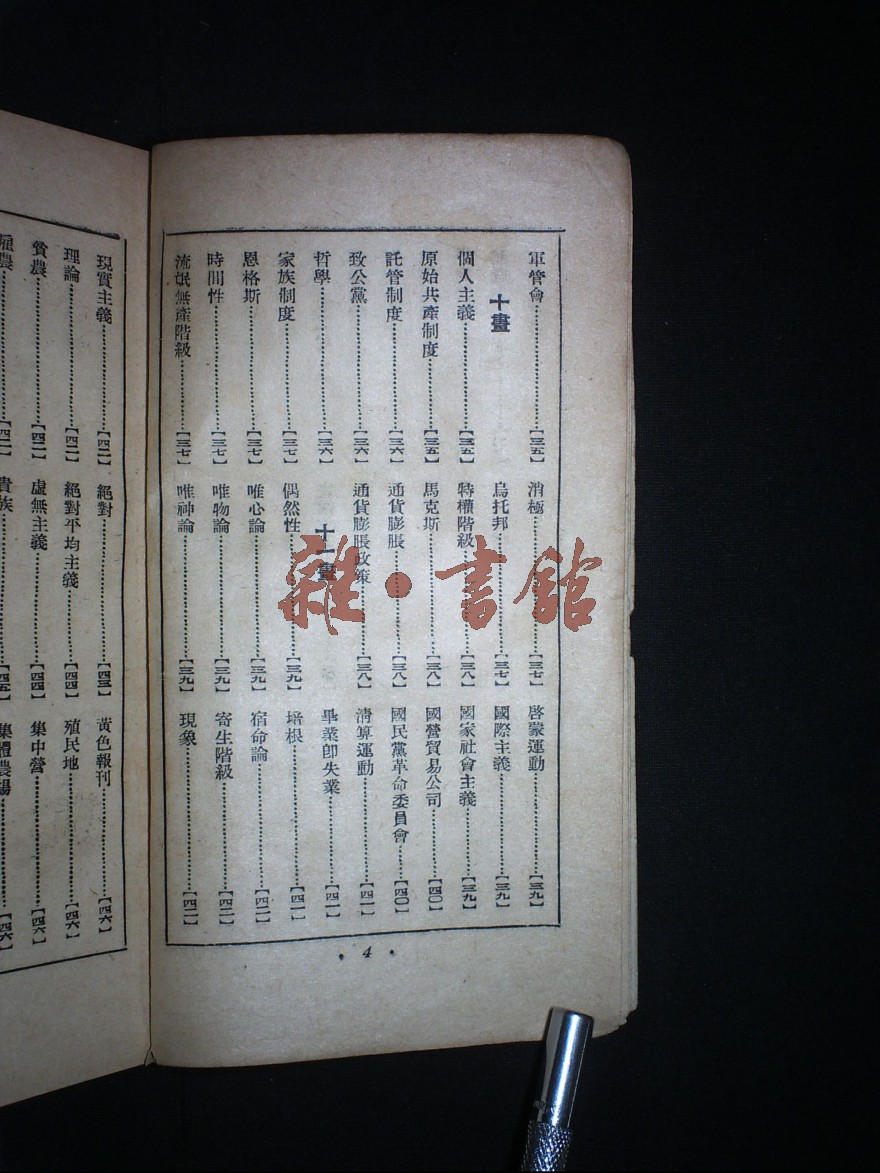 軍管會【三五】
十畫
個人主義【三五】
原始共產制度【三五】
託管制度【三六】
致公黨【三六】
哲學【三六】
家族制度【三七】
恩格斯【三七】
時間性【三七】
流氓無產階級【三七】
消極【三七】
烏托邦【三七】
特權階級【三八】
馬克斯【三八】
通貨膨脹【三八】
通貨膨脹政策【三八】
十一畫
偶然性【三九】
唯心論【三九】
唯物論【三九】
唯神論【三九】
啓蒙運動【三九】
國際主義【三九】
國家社會主義【三九】
國營貿易公司【四〇】
國民黨革命委員會【四〇】
清算運動【四一】
畢業卽失業【四一】
培根【四一】
宿命論【四二】
寄生階級【四二】
現象【四二】
• 4 •
現實主義【四二】
理論【四二】
貧農【四二】
雇農【四二】
絕對【四三】
絕對平均主義【四四】
虛無主義【四四】
貴族【四五】
黃色報刊【四六】
殖民地【四六】
集中營【四六】
集體農場【四六】
雜·書館